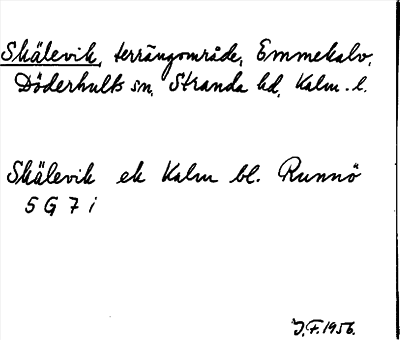 Skälevik, terrängområde, Emmekalv,
Döderhults sn, Stranda hd, Kalm. l.
Skälevik ek Kalm bl. Runnö
5 G 7 i
J.F. 1956.